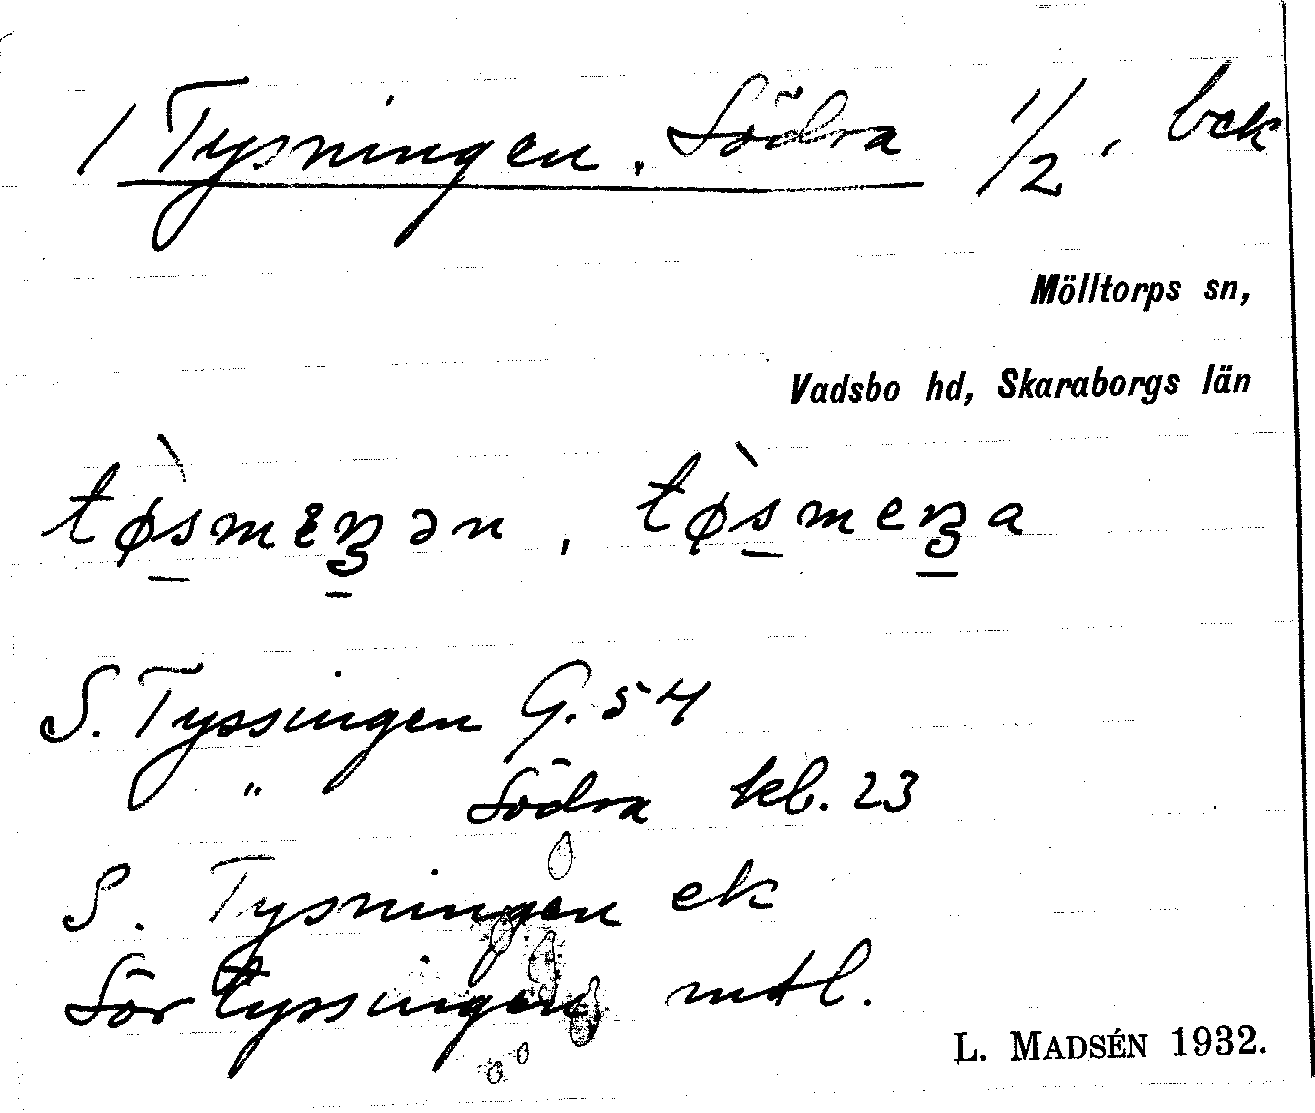 1 Tysningen, Södra 1/2, bek
Mölltorps sn,
Vadsbo hd, Skaraborgs län
tø̀smeŋən, tø̀smeŋa
S. Tyssingen G. 54
" Södra kb. 23
S. Tysningen ek
Sör tyssingen mtl.
L. MADSÉN 1932.